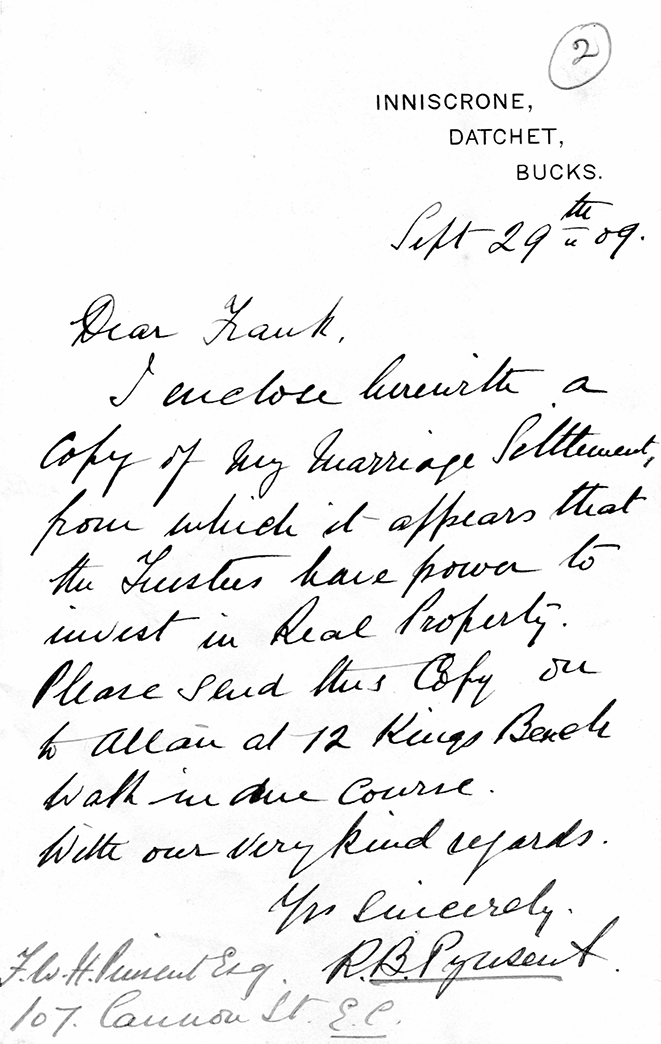 2
INNISCRONE,
DATCHET,
BUCKS.
Sept 29th 09.
Dear Frank,
I enclose herewith a
Copy of my Marriage Settlement,
from which it appears that
the Trustees have power to
invest in Real Property.
Please send this Copy on
to Allan at 12 Kings Bench
Walk in due course.
With our very kind regards.
Yrs Sincerely.
R.B. Pynsent.
F.W.H. Pinsent Esq.
107. Cannon St. E.C.